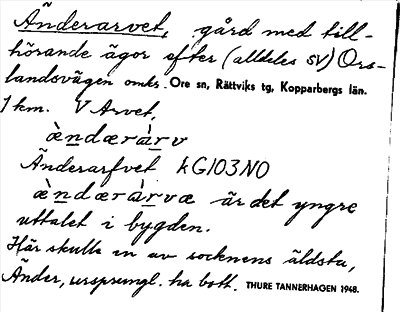 Änderarvet, gård med till-
hörande ägor efter (alldeles SV) Ors-
landsvägen omkr. Ore sn, Rättviks tg, Kopparbergs län.
1 km. V Arvet,
ὰndærὰrv
Änderarfvet kG103NO
ὰndærὰrvæ är det yngre
uttalet i bygden.
Här skulle en av socknens äldsta,
Änder, ursprungl. ha bott. THURE TANNERHAGEN 1948.